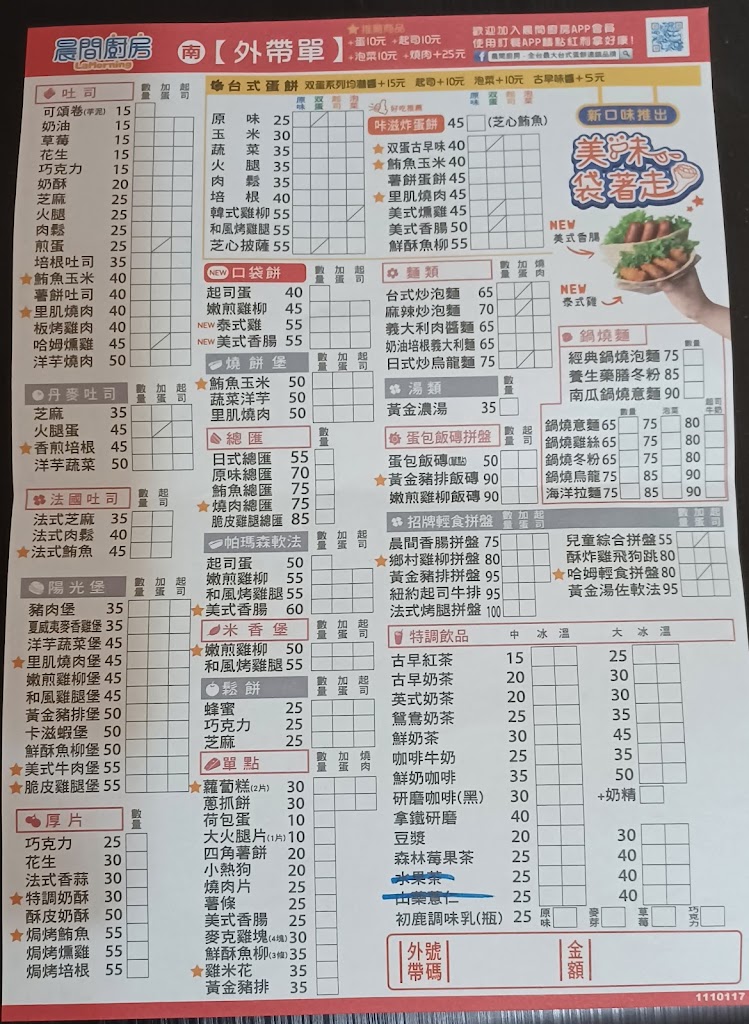 晨間廚房
LaMorning
南【外帶單】
★推薦商品
+蛋10元 +起司10元
+泡菜10元 +燒肉+25元
歡迎加入晨間廚房APP會員
使用訂餐APP請點紅利拿好康!
晨間廚房-全台最大台式蛋餅連鎖品牌
吐司 數量 加蛋 起司
可頌卷(芋泥) 15
奶油 15
草莓 15
花生 15
巧克力 15
奶酥 20
芝麻 25
火腿 25
肉鬆 25
煎蛋 25
培根吐司 35
★鮪魚玉米 40
薯餅吐司 40
★里肌燒肉 40
板烤雞肉 40
哈姆燻雞 45
洋芋燒肉 50
丹麥吐司 數量 加蛋 起司
芝麻 35
火腿蛋 45
★香煎培根 45
洋芋蔬菜 50
法國吐司 數量 加蛋 起司
法式芝麻 35
法式肉鬆 40
★法式鮪魚 45
陽光堡 數量 加蛋 起司
豬肉堡 35
夏威夷麥香雞堡 35
洋芋蔬菜堡 45
★里肌燒肉堡 45
嫩煎雞柳堡 45
和風雞腿堡 45
黃金豬排堡 50
卡滋蝦堡 50
鮮酥魚柳堡 50
★美式牛肉堡 55
★脆皮雞腿堡 55
厚片 數量
巧克力 25
花生 30
法式香蒜 30
★特調奶酥 30
酥皮奶酥 50
★焗烤鮪魚 55
焗烤燻雞 55
焗烤培根 55
台式蛋餅 雙蛋系列均灑醬+15元 起司+10元 泡菜+10元 古早味醬+5元
原味 雙蛋 起司 泡菜
原味 25
玉米 30
蔬菜 35
火腿 35
肉鬆 35
培根 40
韓式雞柳 55
和風烤雞腿 55
芝心披薩 55
好吃推薦 原味 雙蛋 起司 泡菜
咔滋炸蛋餅 45 (芝心鮪魚)
★雙蛋古早味 40
★鮪魚玉米 40
薯餅蛋餅 40
★里肌燒肉 45
美式燻雞 45
美式香腸 50
鮮酥魚柳 50
新口味推出
美味袋著走
NEW
美式香腸
NEW
泰式雞
NEW 口袋餅 數量 加蛋 起司
起司蛋 40
嫩煎雞柳 45
NEW 泰式雞 55
NEW 美式香腸 55
燒餅堡 數量 加蛋 起司
★鮪魚玉米 50
蔬菜洋芋 50
里肌燒肉 50
總匯 數量
日式總匯 55
原味總匯 70
鮪魚總匯 75
★燒肉總匯 75
脆皮雞腿總匯 85
帕瑪森軟法 數量 加蛋 起司
起司蛋 50
嫩煎雞柳 55
和風烤雞腿 55
★美式香腸 60
米香堡 數量 加蛋 起司
★嫩煎雞柳 50
和風烤雞腿 55
鬆餅 數量 加蛋 起司
蜂蜜 25
巧克力 25
芝麻 25
單點 數量 加蛋 燒肉
★蘿蔔糕(2片) 30
蔥抓餅 30
荷包蛋 10
大火腿片(1片) 10
四角薯餅 20
小熱狗 20
燒肉片 25
薯條 25
美式香腸 25
麥克雞塊(4塊) 30
鮮酥魚柳(3條) 35
★雞米花 35
黃金豬排 35
麵類 數量 加蛋 燒肉
台式炒泡麵 65
麻辣炒泡麵 70
義大利肉醬麵 65
奶油培根義大利麵 65
日式炒烏龍麵 75
湯類 數量
黃金濃湯 35
蛋包飯磚拼盤 數量
蛋包飯磚(單點) 50
★黃金豬排飯磚 90
嫩煎雞柳飯磚 90
鍋燒麵 數量
經典鍋燒泡麵 75
養生藥膳冬粉 85
南瓜鍋燒意麵 90
數量 泡菜 起司牛奶
鍋燒意麵 65 75 80
鍋燒雞絲 65 75 80
鍋燒冬粉 65 75 80
鍋燒烏龍 75 85 90
海洋拉麵 75 85 90
招牌輕食拼盤
晨間香腸拼盤 75
★鄉村雞柳拼盤 80
黃金豬排拼盤 95
紐約起司牛排 95
法式烤腿拼盤 100
兒童綜合拼盤 55
酥炸雞飛狗跳 80
★哈姆輕食拼盤 80
黃金湯佐軟法 95
特調飲品 中 冰 溫 大 冰 溫
古早紅茶 15 25
古早奶茶 20 30
英式奶茶 20 30
鴛鴦奶茶 25 35
鮮奶茶 30 45
咖啡牛奶 25 35
鮮奶咖啡 35 50
研磨咖啡(黑) 30 +奶精
拿鐵研磨 40
豆漿 20 30
森林莓果茶 25 40
水果茶 25 40
山藥薏仁 25 40
初鹿調味乳(瓶) 25 原味 麥芽 草莓 巧克力
外帶號碼
金額
1110117